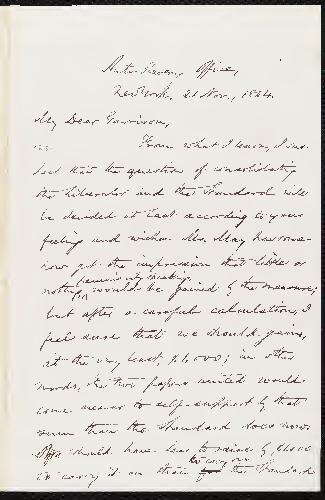 Anti-Slavery Office,
New York, 21 Nov., 1864.
My Dear Garrison,
From what I learn, I in-
fer that the question of consolidating
the Liberator and the Standard will
be decided at last according to your
feeling and wishes. Mr. May has some-
how got the impression that little or
nothing (pecuniarily speaking) would be gained by the measure;
but after a careful calculation, I
feel sure that we should gain,
at the very least, $1,000; in other
words, the two papers united would
come nearer to self-support by that
sum than the Standard does now
should have less to raise by $1000
to carry it on than the Standard